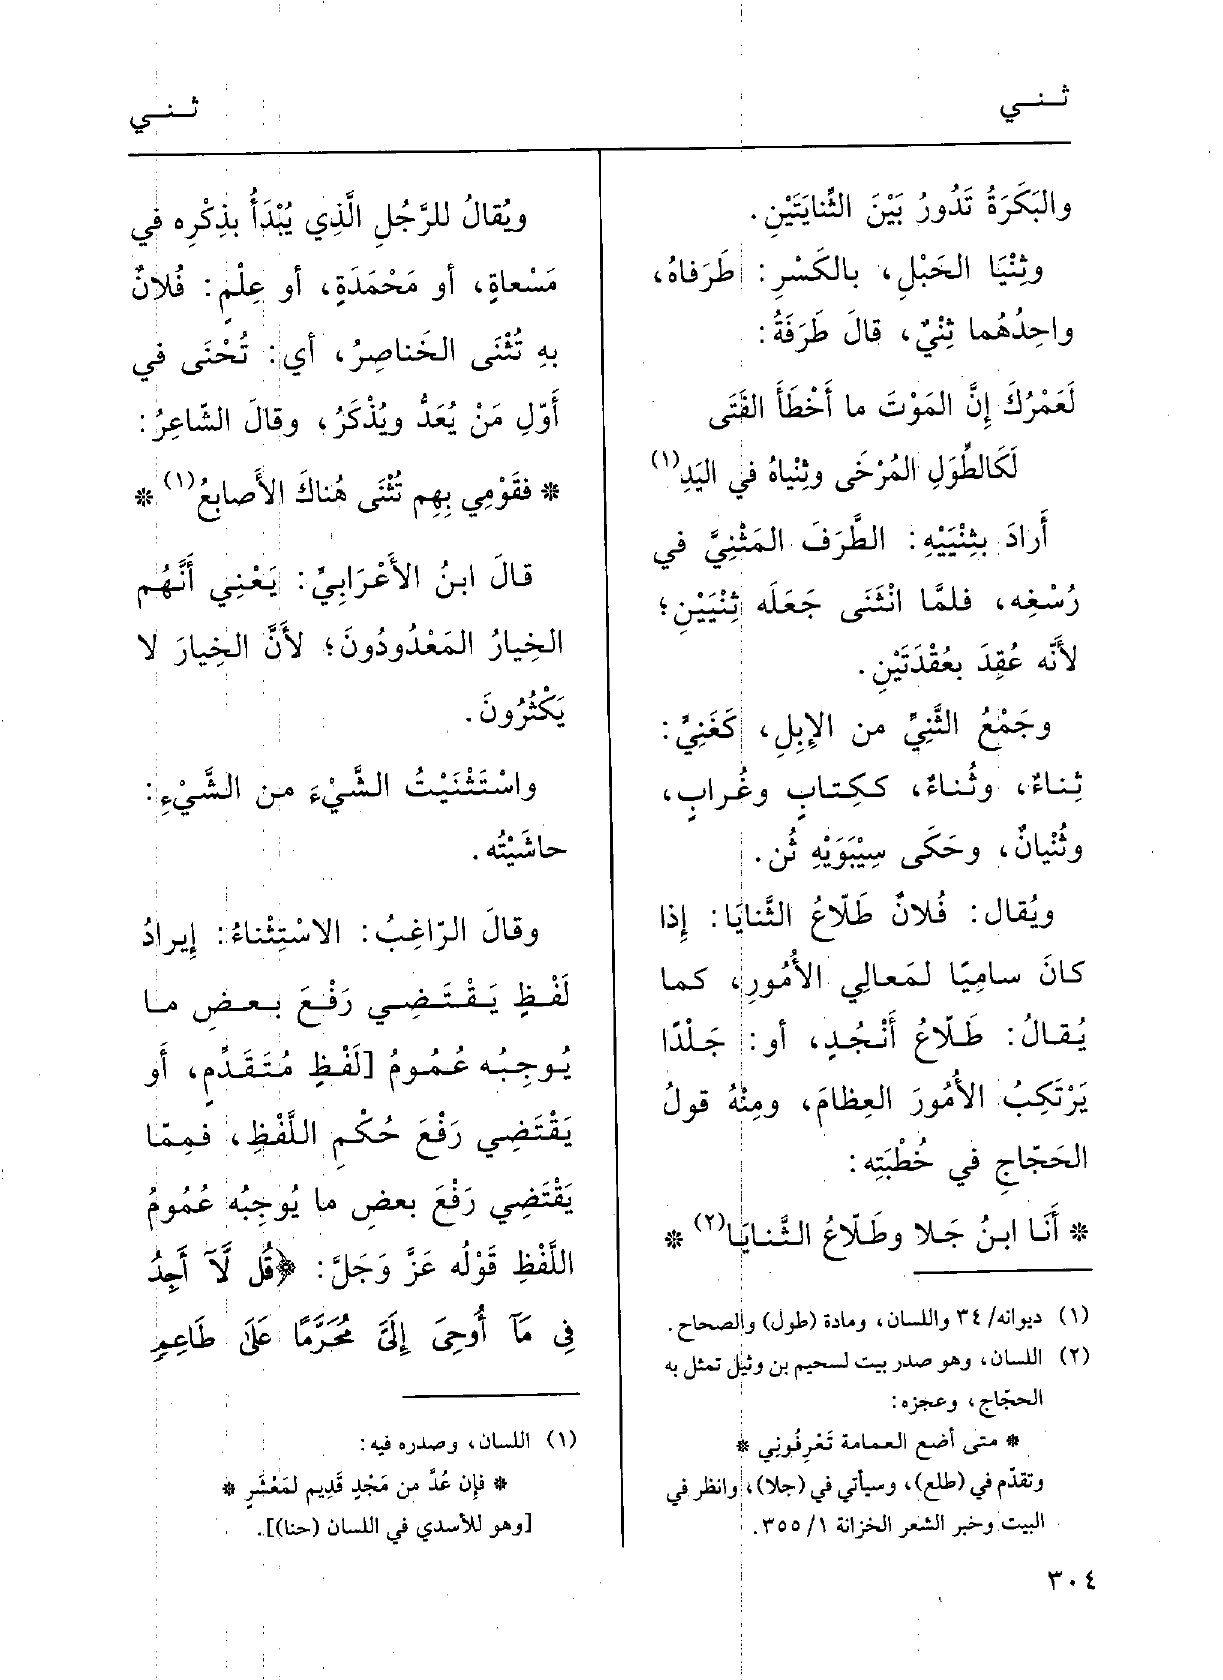 ثـنـي
ثـنـي
والبَكَرَةُ تَدُورُ بَيْنَ الثِّنايَتَيْنِ.
وثِنْيَا الحَبْلِ، بالكَسْرِ: طَرَفاهُ،
واحِدُهُما ثِنْيٌ، قالَ طَرَفَةُ:
لَعَمْرُكَ إِنَّ المَوْتَ ما أَخْطَأَ الفَتَى
لَكَالطِّوَلِ المُرْخَى وثِنْياهُ في اليَدِ(١)
أَرادَ بثِنْيَيْهِ: الطَّرَفَ المَثْنِيَّ في
رُسْغِه، فلمَّا انْثَنَى جَعَلَه ثِنْيَيْنِ؛
لأَنَّه عُقِدَ بعُقْدَتَيْنِ.
وجَمْعُ الثَّنِيِّ من الإِبِلِ، كَغَنِيٍّ:
ثِناءٌ، وثُناءٌ، ككِتابٍ وغُرابٍ،
وثُنْيانٌ، وحَكَى سِيْبَوَيْهِ ثُن.
ويُقال: فُلانٌ طَلّاعُ الثَّنايَا: إِذا
كانَ سامِيًا لمَعالِي الأُمُورِ، كما
يُقالُ: طَلّاعُ أَنْجُدٍ، أو: جَلْدًا
يَرْتَكِبُ الأُمُورَ العِظامَ، ومِنْهُ قولُ
الحَجّاجِ في خُطْبَتِه:
* أَنَا ابنُ جَلا وطَلّاعُ الثَّنايَا(٢) *
(١) ديوانه/ ٣٤ واللسان، ومادة (طول) والصحاح.
(٢) اللسان، وهو صدر بيت لسحيم بن وثيل تمثل به
الحجّاج، وعجزه:
* متى أضع العمامة تَعْرِفُونِي *
وتقدّم في (طلع)، وسيأتي في (جلا)، وانظر في
البيت وخبر الشعر الخزانة ١/ ٣٥٥.
ويُقالُ للرَّجُلِ الَّذِي يُبْدَأُ بذِكْرِه في
مَسْعاةٍ، أو مَحْمَدَةٍ، أو عِلْمٍ: فُلانٌ
بهِ تُثْنَى الخَناصِرُ، أي: تُحْنَى في
أَوّلِ مَنْ يُعَدُّ ويُذْكَرُ، وقالَ الشّاعِرُ:
* فقَوْمِي بِهِم تُثْنَى هُناكَ الأَصابِعُ(١) *
قالَ ابنُ الأَعْرَابِيِّ: يَعْنِي أَنَّهُم
الخِيارُ المَعْدُودُونَ؛ لأَنَّ الخِيارَ لا
يَكْثُرُونَ.
واسْتَثْنَيْتُ الشَّيْءَ من الشَّيْءِ:
حاشَيْتُه.
وقالَ الرّاغِبُ: الاسْتِثْناءُ: إِيرادُ
لَفْظٍ يَقْتَضِي رَفْعَ بعضِ ما
يُوجِبُه عُمُومُ [لَفْظٍ مُتَقَدِّمٍ، أَو
يَقْتَضِي رَفْعَ حُكْمِ اللَّفْظِ، فمِمّا
يَقْتَضِي رَفْعَ بعضِ ما يُوجِبُه عُمُومُ
اللَّفْظِ قَوْلُه عَزَّ وَجَلَّ: ﴿قُل لَّآ أَجِدُ
فِى مَآ أُوحِىَ إِلَىَّ مُحَرَّمًا عَلَىٰ طَاعِمٍ
(١) اللسان، وصدره فيه:
* فإِن عُدَّ من مَجْدٍ قَدِيمٍ لمَعْشَرٍ *
[وهو للأسدي في اللسان (حنا)].
٣٠٤